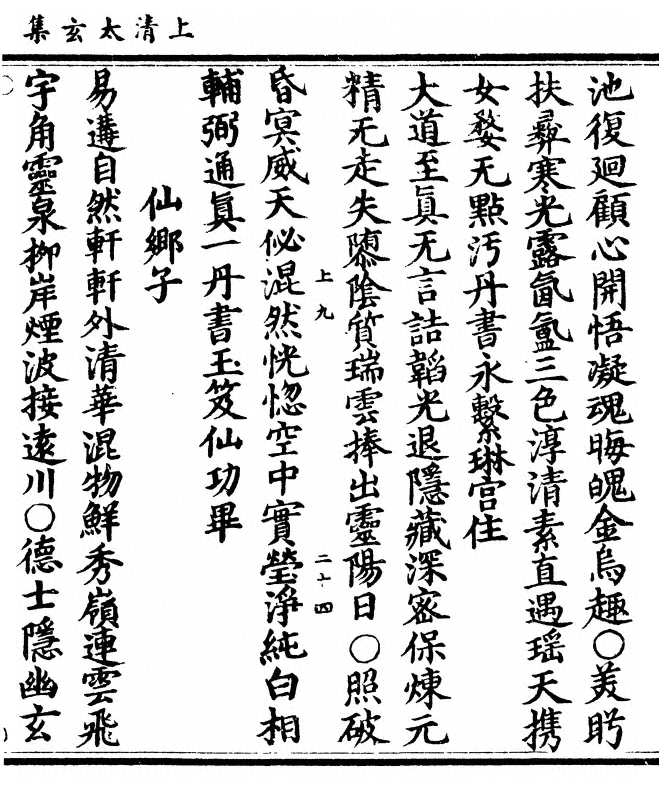 上清太玄集
池復迴顧心開悟凝魂晦魄金烏趣〇美眄
扶彝寒光露氤氳三色淳清素直遇瑶天携
女婺无點汚丹書永繫琳宫住
大道至眞无言詰韜光退隱藏深宻保煉元
精无走失隳陰質瑞雲捧出靈陽日〇照破
上九
二十四
昏寞威天佖混然恍惚空中實瑩淨純白相
輔弼通眞一丹書玉笈仙功畢
仙鄉子
易遘自然軒軒外清華混物鮮秀嶺連雲飛
宇角靈泉栁岸煙波接逺川〇德士隱幽玄